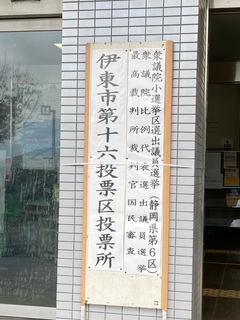 衆議院小選挙区選出議員選挙(静岡県第6区)
衆議院比例代表選出議員選挙
最高裁判所裁判官国民審査
伊東市第十六投票区投票所